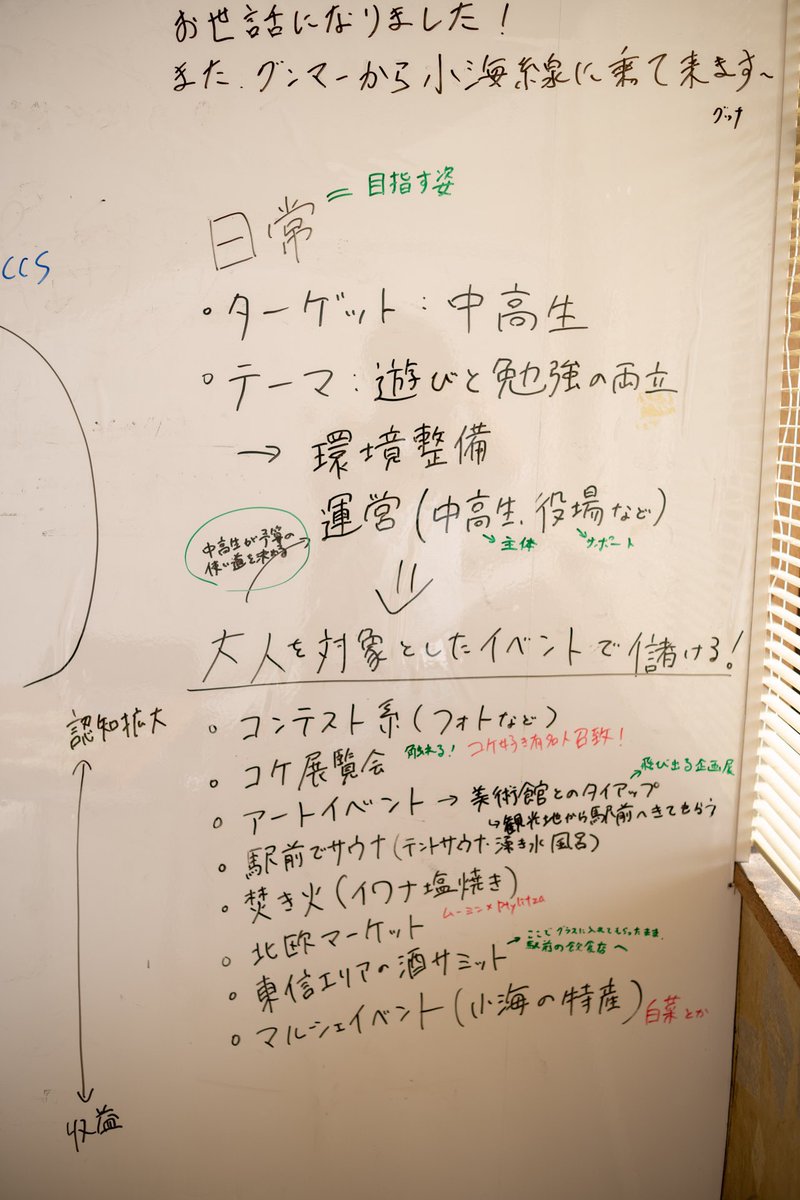 お世話になりました！
また、グンマーから小海線に乗て来ます〜
グッナ
CCS
日常
= 目指す姿
・ターゲット：中高生
・テーマ：遊びと勉強の両立
→ 環境整備
運営(中高生、役場など)
→主体
→サポート
中高生が予算の
使い道を決める
大人を対象としたイベントで儲ける！
認知拡大
収益
・コンテスト系(フォトなど)
・コケ展覧会 触れる！ コケ好き有名人召致！
・アートイベント → 美術館とのタイアップ
→飛び出る企画展
↳観光地から駅前へきてもらう
・駅前でサウナ(テントサウナ・湧き水風呂)
・焚き火(イワナ塩焼き)
・北欧マーケット ムーミン×
・東信エリアの酒サミット
→ここでグラスに入れてもらったまま、
駅前の飲食店へ
・マルシェイベント(小海の特産) 白菜とか